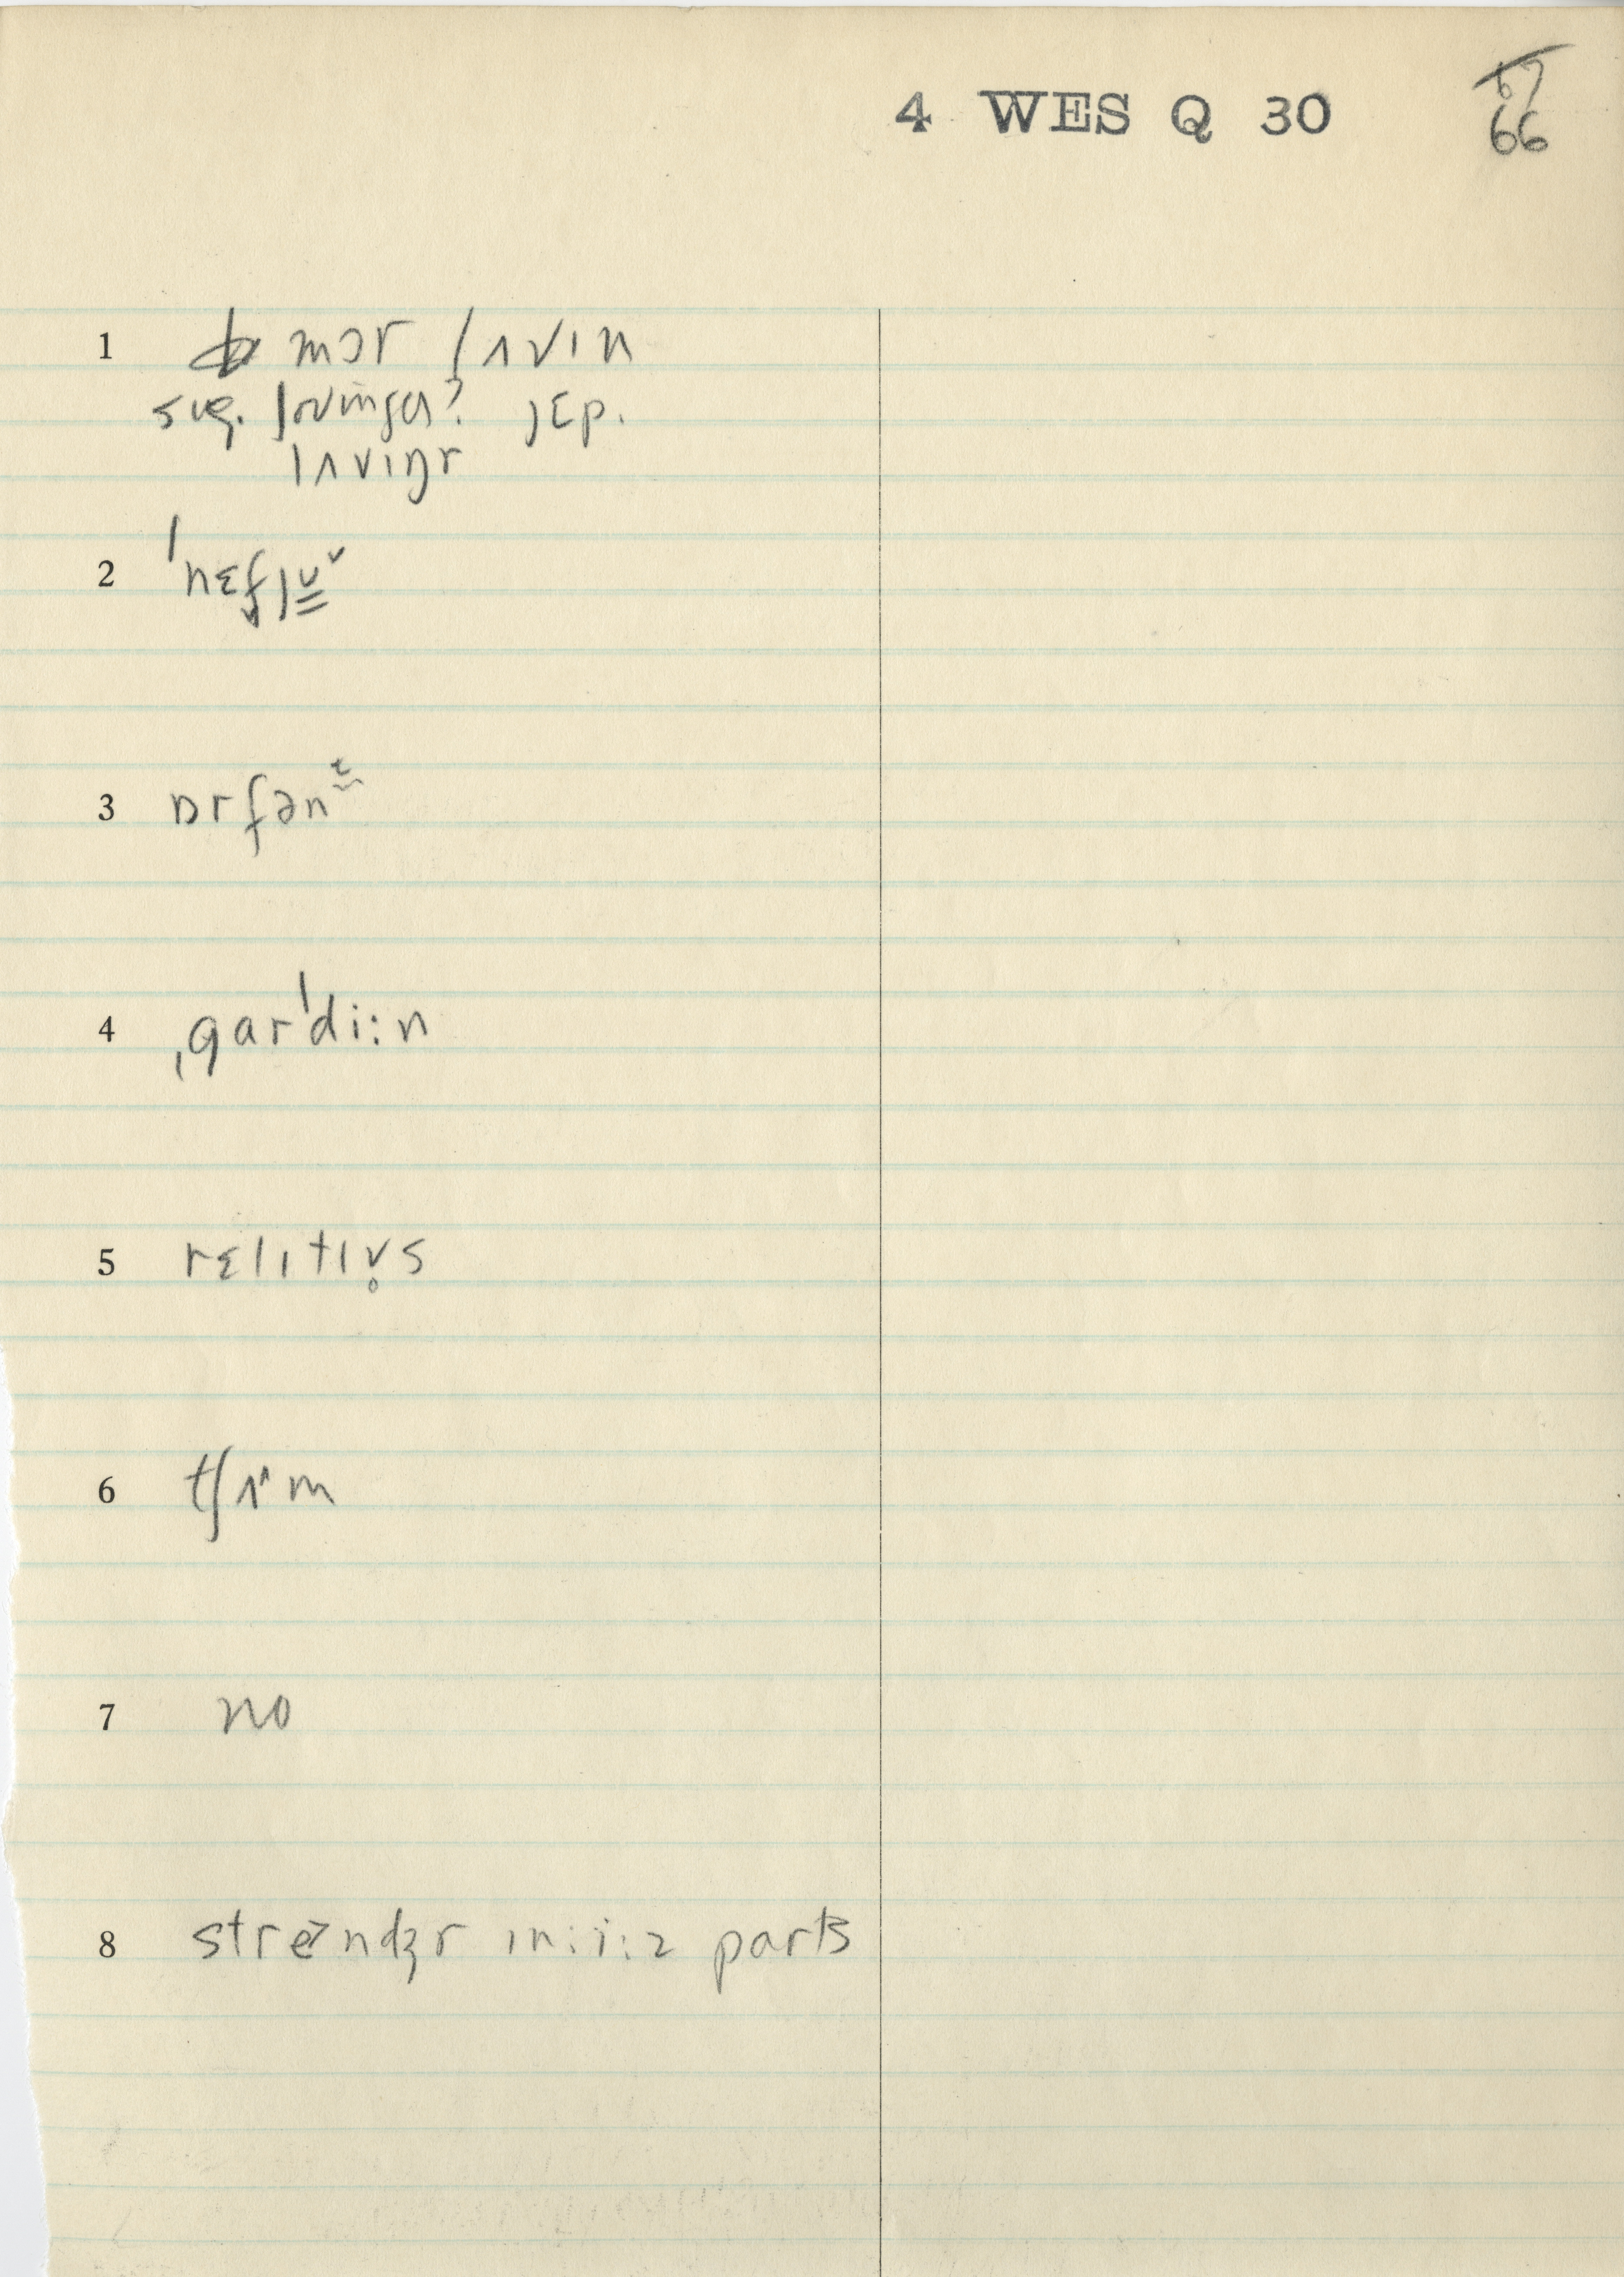 4 WES Q 30
67
66
1 mɔr lʌvɪn
sug. lovinger? jɛp.
lʌvɪŋr
2 ˈnɛf̬jṳᵛ
3 ɒrfənᵗ
4 ˌgarˈdi:n
5 rɛlɪtɪv̥s
6 tʃɪᵊm
7 no
8 streɪndʒr ɪn:i:z parts